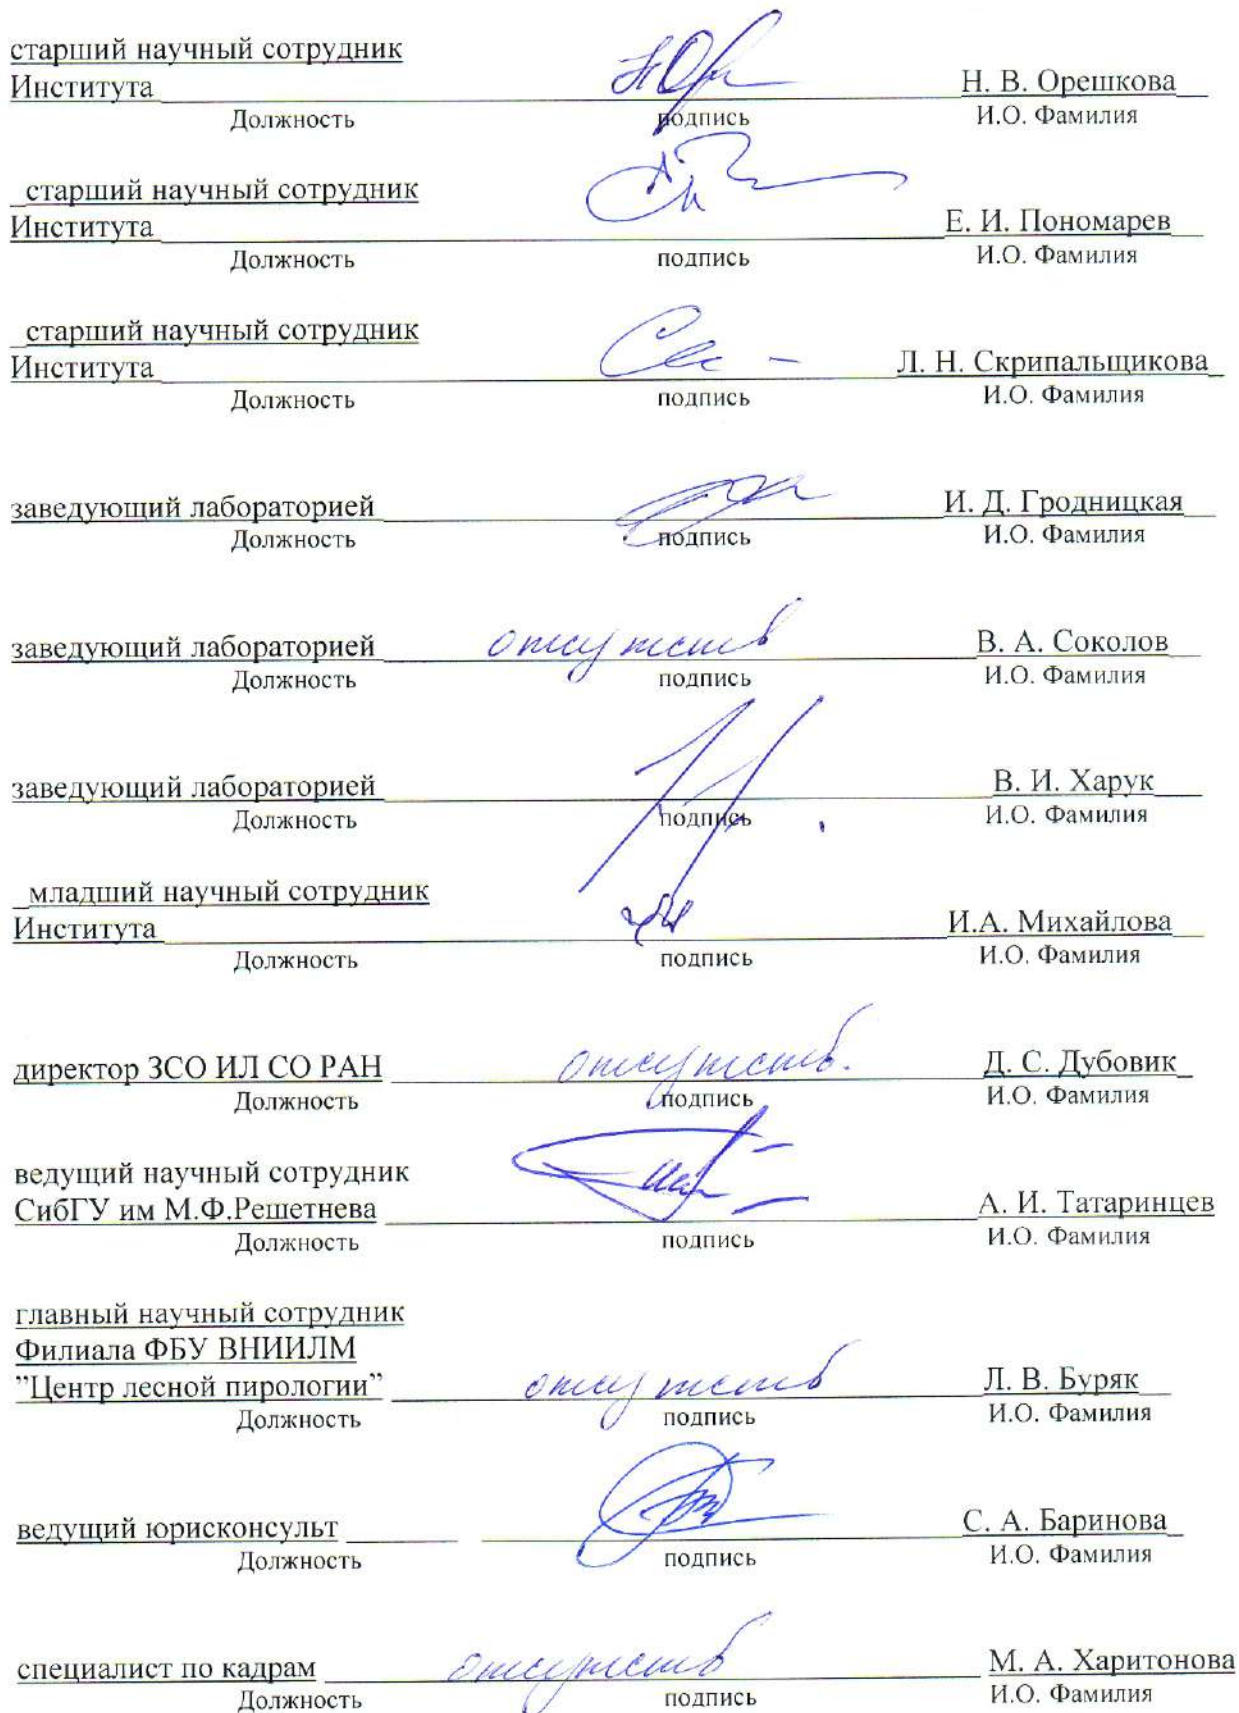 старший научный сотрудник
Института Н. В. Орешкова
Должность подпись И.О. Фамилия
старший научный сотрудник
Института Е. И. Пономарев
Должность подпись И.О. Фамилия
старший научный сотрудник
Института Л. Н. Скрипальщикова
Должность подпись И.О. Фамилия
заведующий лабораторией И. Д. Гродницкая
Должность подпись И.О. Фамилия
заведующий лабораторией отсутств В. А. Соколов
Должность подпись И.О. Фамилия
заведующий лабораторией В. И. Харук
Должность подпись И.О. Фамилия
младший научный сотрудник
Института И.А. Михайлова
Должность подпись И.О. Фамилия
директор ЗСО ИЛ СО РАН отсутств. Д. С. Дубовик
Должность подпись И.О. Фамилия
ведущий научный сотрудник
СибГУ им М.Ф.Решетнева А. И. Татаринцев
Должность подпись И.О. Фамилия
главный научный сотрудник
Филиала ФБУ ВНИИЛМ
”Центр лесной пирологии” отсутств Л. В. Буряк
Должность подпись И.О. Фамилия
ведущий юрисконсульт С. А. Баринова
Должность подпись И.О. Фамилия
специалист по кадрам отсутств М. А. Харитонова
Должность подпись И.О. Фамилия